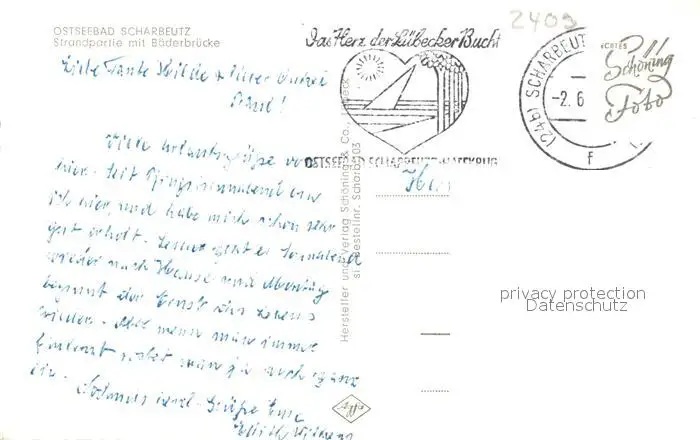 2409
OSTSEEBAD SCHARBEUTZ
Strandpartie mit Bäderbrücke
Das Herz der Lübecker Bucht
OSTSEEBAD SCHARBEUTZ-HAFFKRUG
(24b) SCHARBEUT
-2.6
f
ECHTES
Schöning
Foto
Liebe Tante Hilde & lieber Onkel
Paul!
Viele Urlaubsgrüße von
hier. Seit Pfingstsonnabend bin
ich hier, und habe mich schon sehr
gut erholt. Leider geht es Sonnabend
wieder nach Hause und Montag
beginnt der Ernst des Lebens
wieder. Aber wenn man immer
man ja auch ganz
Nochmals herzl. Grüße Eure
Hersteller und Verlag Schöning & Co., Lübeck
Bestellnr. Scharb. 103
Agfa
privacy protection
Datenschutz